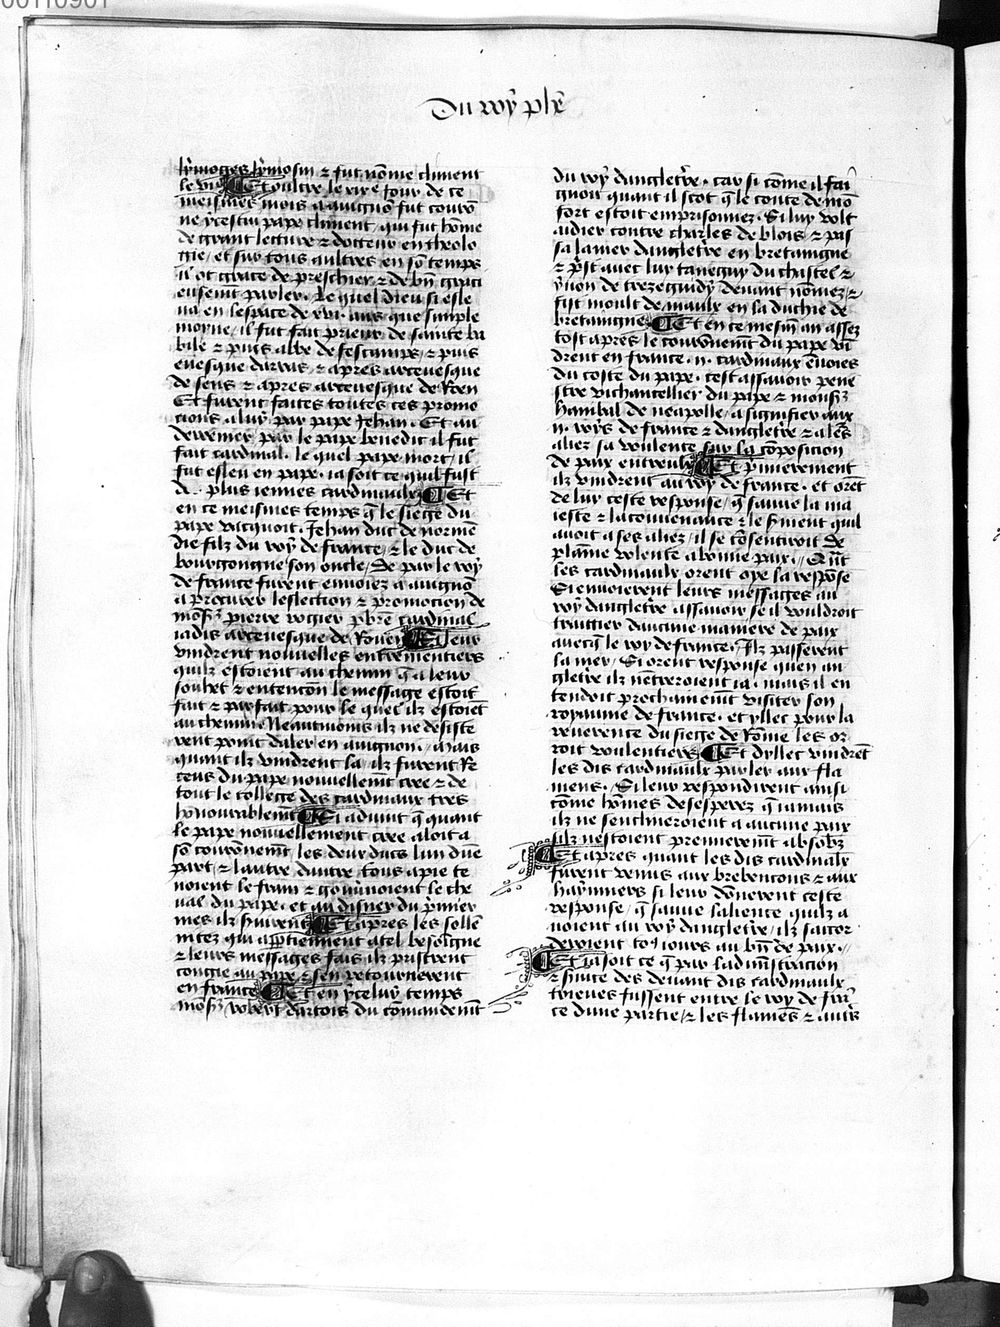 00110901
Du roy phẽ
lymoges lymosin ⁊ fut nõme climent
le vie ¶ Et oultre le xixe jour de ce
meismes mois a auignõ fut couro
ne ycestui pape climent / qui fut hõme
de grant lecture ⁊ docteur en theolo
gie / et sur tous aultres en sõ temps
il ot grace de preschier ⁊ de bñ graci
eusemt parler. Le quel dieu si esle
ua en lespace de xvi. ans que simple
moyne / il fut fait prieur de sainte ba
bile ⁊ puis abbe de fescamps / ⁊ puis
euesque darras / ⁊ apres arceuesque
de sens ⁊ apres arceuesque de Roen
Et furent faites toutes ces promo
cions a luy par pape Jehan. Et au
derrenier par le pape benedic il fut
fait cardinal. le quel pape mort / il
fut esleu en pape. ia soit ce quil fust
des plus iennes cardinaulx ¶ Et
en ce meismes temps q̃ le siege du
pape vacquoit. Jehan duc de normẽ
die filz du roy de france / ⁊ le duc de
bourgongne son oncle / De par le roy
de france furent enuoiez a auignõ
a procurer leslection ⁊ promocion de
mõss pierre rogier p̃bre cardinal
iadis arceuesque de Rouen ¶ Si leur
vindrent nouuelles entrementiers
quilz estoient au chemin q̃ a leur
souhet ⁊ entencon le message estoit
fait ⁊ parfait / pour le quel ilz estoiẽt
au chemin Neantmoins ilz ne desiste
rent point daler en auignon. / mais
quant ilz vindrent la / ilz furent Re
ceus du pape nouuellemt cree ⁊ de
tout le college des cardinaux tres
hõnourablemt ¶ Si aduint q̃ quant
le pape nouuellement cree aloit a
sõ couronnemt / les deux ducs lun dune
part ⁊ lautre dautre tous a pie te
noient le frain ⁊ gouũnoient le che
ual du pape. et au disner du p̃mier
mes ilz suirent ¶ Et apres les sollẽ
nitez qui app̃tiennent a tel besoigne
⁊ leurs messages fais ilz prisrent
congie au pape ⁊ sen retournerent
en france ¶ Et en yceluy temps
mõss robert dartois du cõmandemt
du roy dangletre. car si cõme il fai
gnoit quant il scot q̃ le conte de mõ
fort estoit emprisonnez. Si luy volt
aidier contre charles de blois ⁊ pas
sa la mer dangletre en bretaingne
⁊ p̃st auec luy taneguy du chastel ⁊
yuon de trezeguidy deuant nõmez / ⁊
fist moult de maulx en la duchie de
bretaingne ¶ Et en ce mesm̃ an assez
tost apres le couronnemt du pape vi
drent en france .ij. cardinaux ẽuoies
du coste du pape. cest assauoir pene
stre vichancellier du pape ⁊ monss
hanibal de neapolle / a signifier aux
.ij. roys de france ⁊ dangletre ⁊ a lẽs
aliez sa voulente sur la cõposicion
de paix entreulx ¶ Et p̃mierement
ilz vindrent au roy de france. et orẽt
de luy ceste response / q̃ sauue la ma
ieste ⁊ la conuenance ⁊ le s̃ment quil
auoit a ses aliez / il se cõsentiroit de
plaine volente a bonne paix. / Quãt
les cardinaulx orent oye la respõse
Si enuoierent leurs messages au
roy dangletre assauoir se il vouldroit
traittier daucune maniere de paix
auecq̃ le roy de france. Ilz passerent
la mer / Si orent response quen an
gletre ilz nẽtreroient ia. mais il en
tendoit prochainemt visiter son
royaume de france. et yllec pour la
reuerence du siege de Rome les or
roit voulentiers ¶ Et dyllec vindrẽt
les dis cardinaulx parler aux fla
mens. Si leur respondirent ainsi
cõme hõmes desesperez q̃ iamais
ilz ne senclineroient a aucune paix
silz nestoient premieremt absolz
¶ Et apres quant les dis cardinalx
furent venus aux brebencons ⁊ aux
haynuiers si leur dõnerent ceste
response / q̃ sauue saliẽce quilz a
uoient au roy dangletre / ilz sacor
deroient tousiours au bñ de paix. /
¶ Et ia soit ce q̃ par ladm̃nistracion
⁊ suite des deuant dis cardinaulx
trieues fussent entre le roy de frãr
ce dune partie / ⁊ les flamẽs ⁊ autr̃s